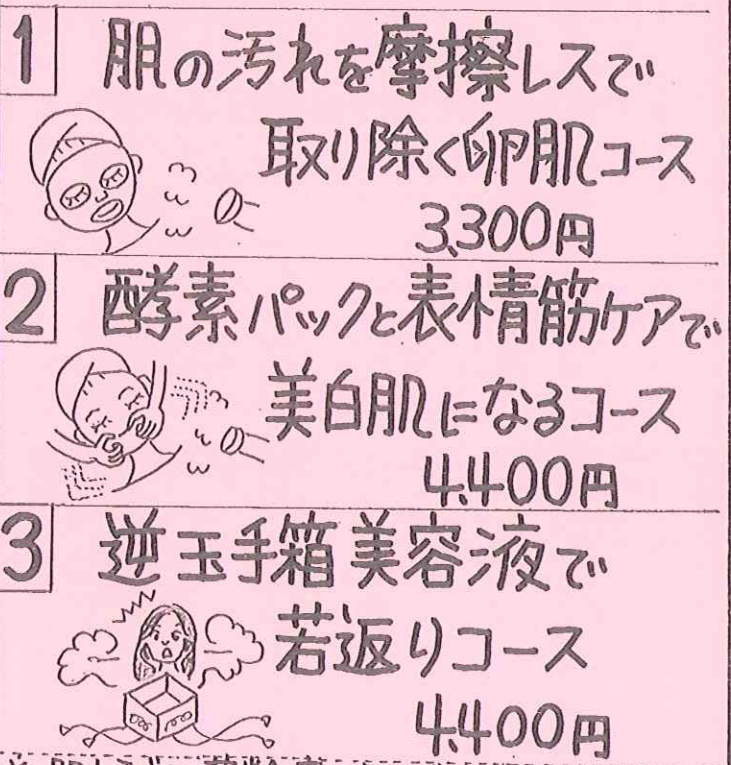 1 肌の汚れを摩擦レスで
取り除く卵肌コース
3,300円
2 酵素パックと表情筋ケアで
美白肌になるコース
4,400円
3 逆玉手箱美容液で
若返りコース
4,400円